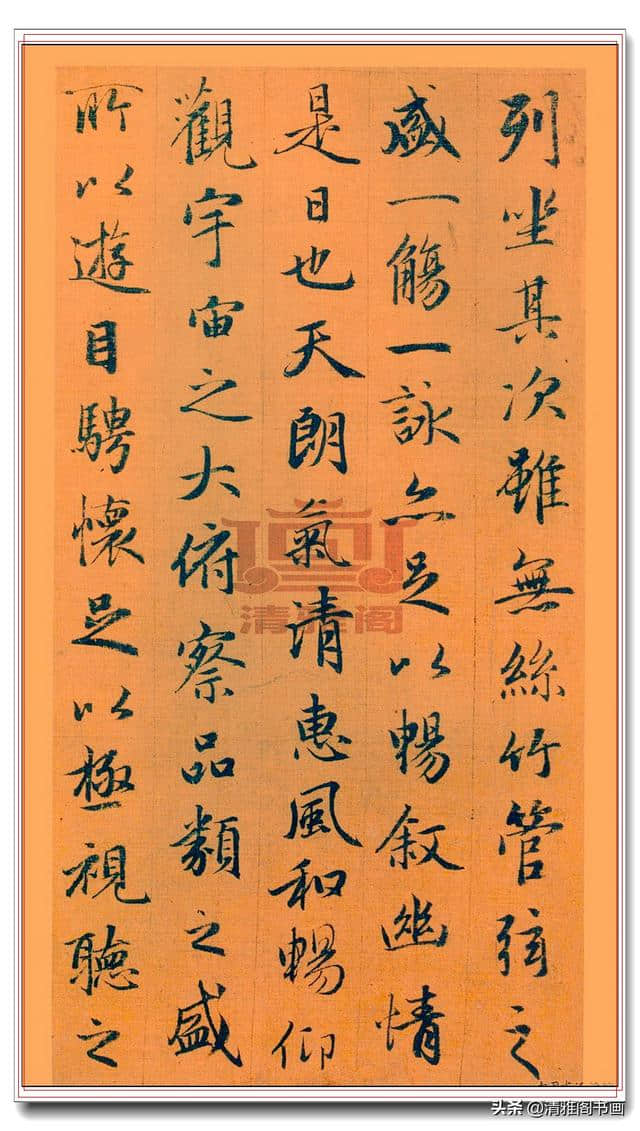 列坐其次雖無絲竹管弦之
盛一觴一詠亦足以暢叙幽情
是日也天朗氣清惠風和暢仰
觀宇宙之大俯察品類之盛
所以遊目騁懷足以極視聽之
清雅阁
头条 @清雅阁书画